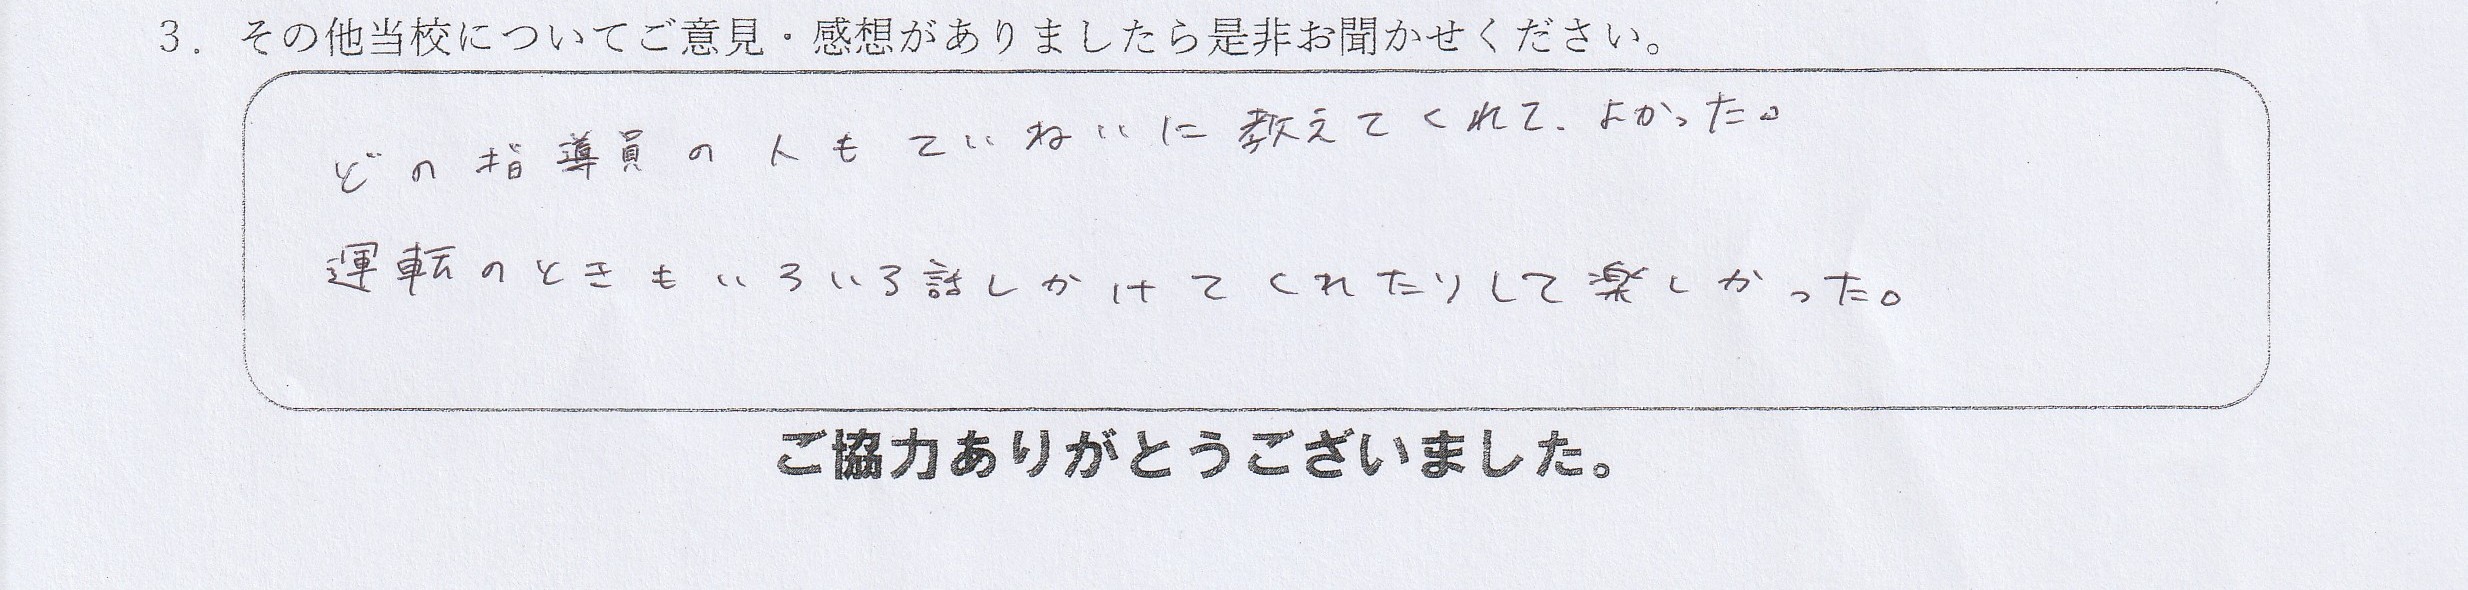 3. その他当校についてご意見・感想がありましたら是非お聞かせください。
どの指導員の人もていねいに教えてくれて、よかった。
運転のときもいろいろ話しかけてくれたりして楽しかった。
ご協力ありがとうございました。